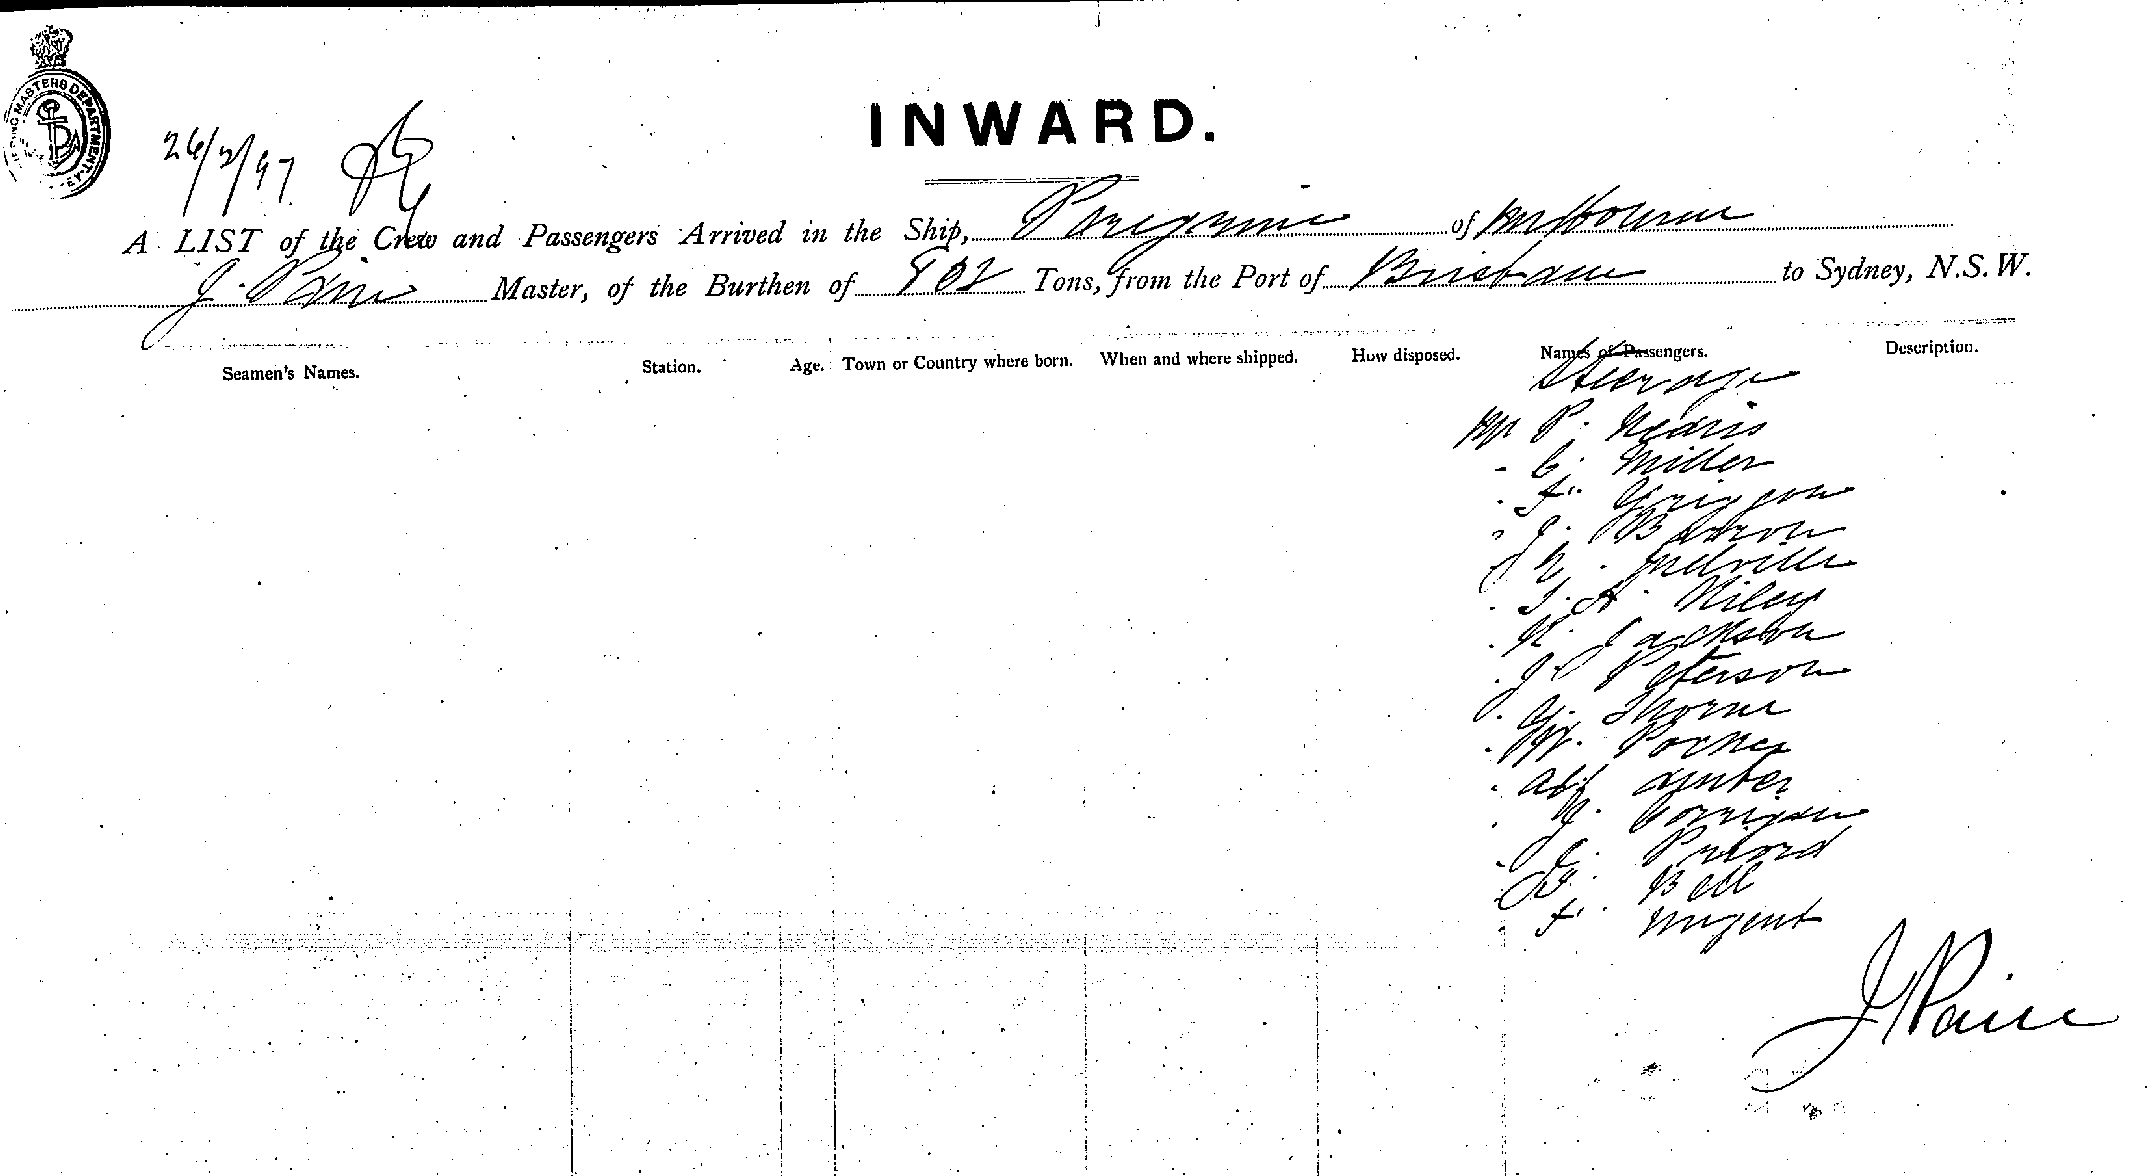 SHIPPING MASTERS DEPARTMENT
26/2/97
INWARD.
A LIST of the Crew and Passengers Arrived in the Ship, Peregrine of Melbourne
J. Paine Master, of the Burthen of 902 Tons, from the Port of Brisbane to Sydney, N.S.W.
Seamen's Names. Station. Age. Town or Country where born. When and where shipped. How disposed. Names of Passengers. Description.
Steerage
Mr P. Nearis
" C. Miller
" F. Grigson
" J. Barron
N. Melville
" J. A. Riley
" K. Jackson
" J. Peterson
" G. Thorne
" W. Porker
" Alf Amber
" J. Corrigan
" J. Pulord
Bell
" F. Nugent
J Paine